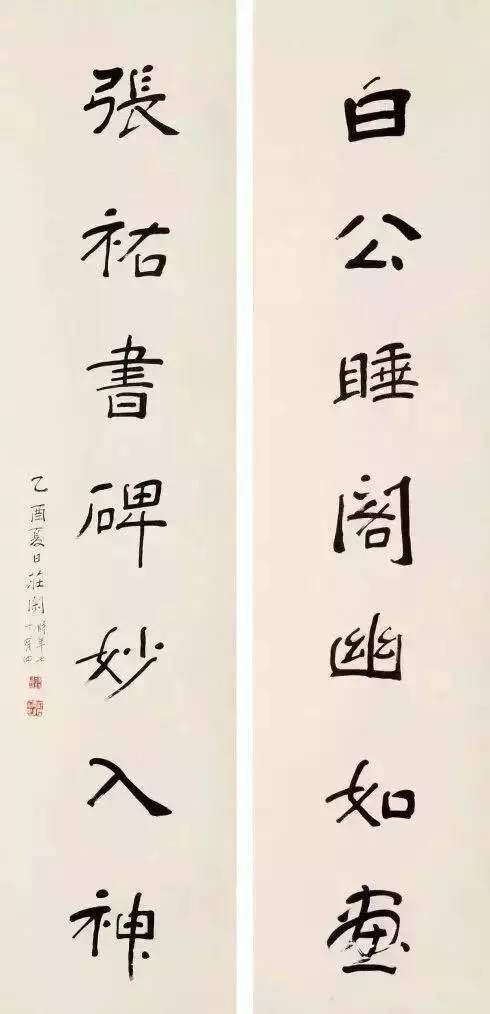 白公睡阁幽如画
張祐書碑妙入神
乙酉夏日莊閑時年七十有四